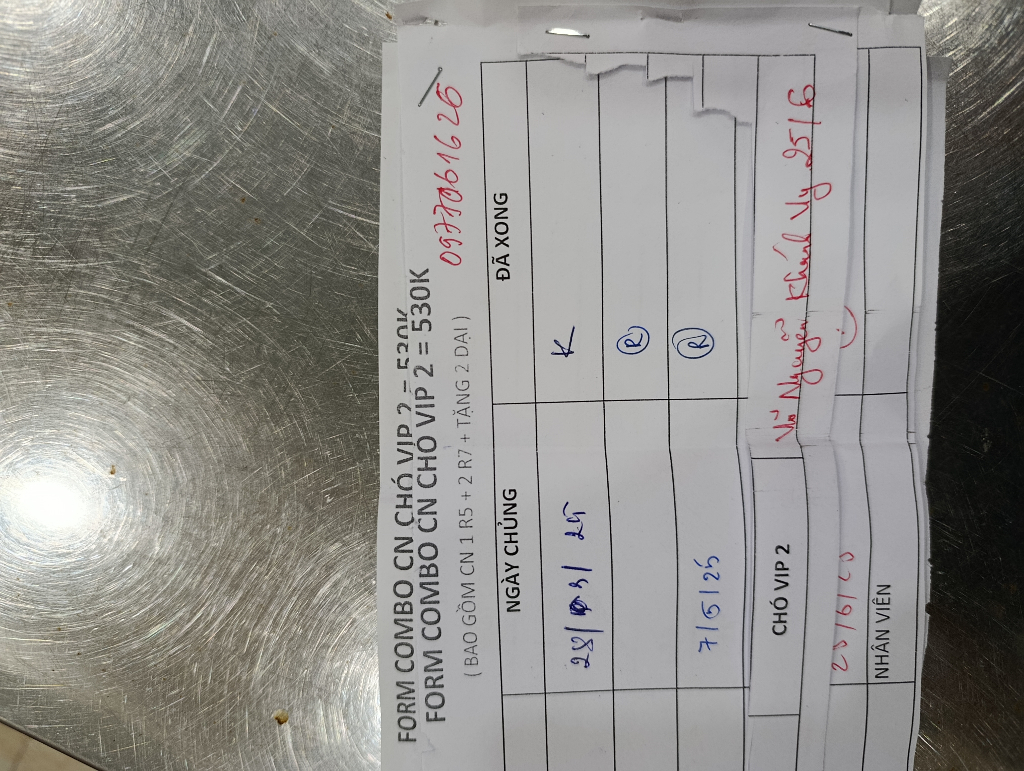 FORM COMBO CN CHÓ VIP 2 = 530K
FORM COMBO CN CHÓ VIP 2 = 530K
( BAO GỒM CN 1 R5 + 2 R7 + TẶNG 2 DẠI )
0977061626
NGÀY CHỦNG ĐÃ XONG
28/03/25 K
R
7/5/25 R
CHÓ VIP 2 Vũ Nguyễn Khánh Vy 25/6
NHÂN VIÊN